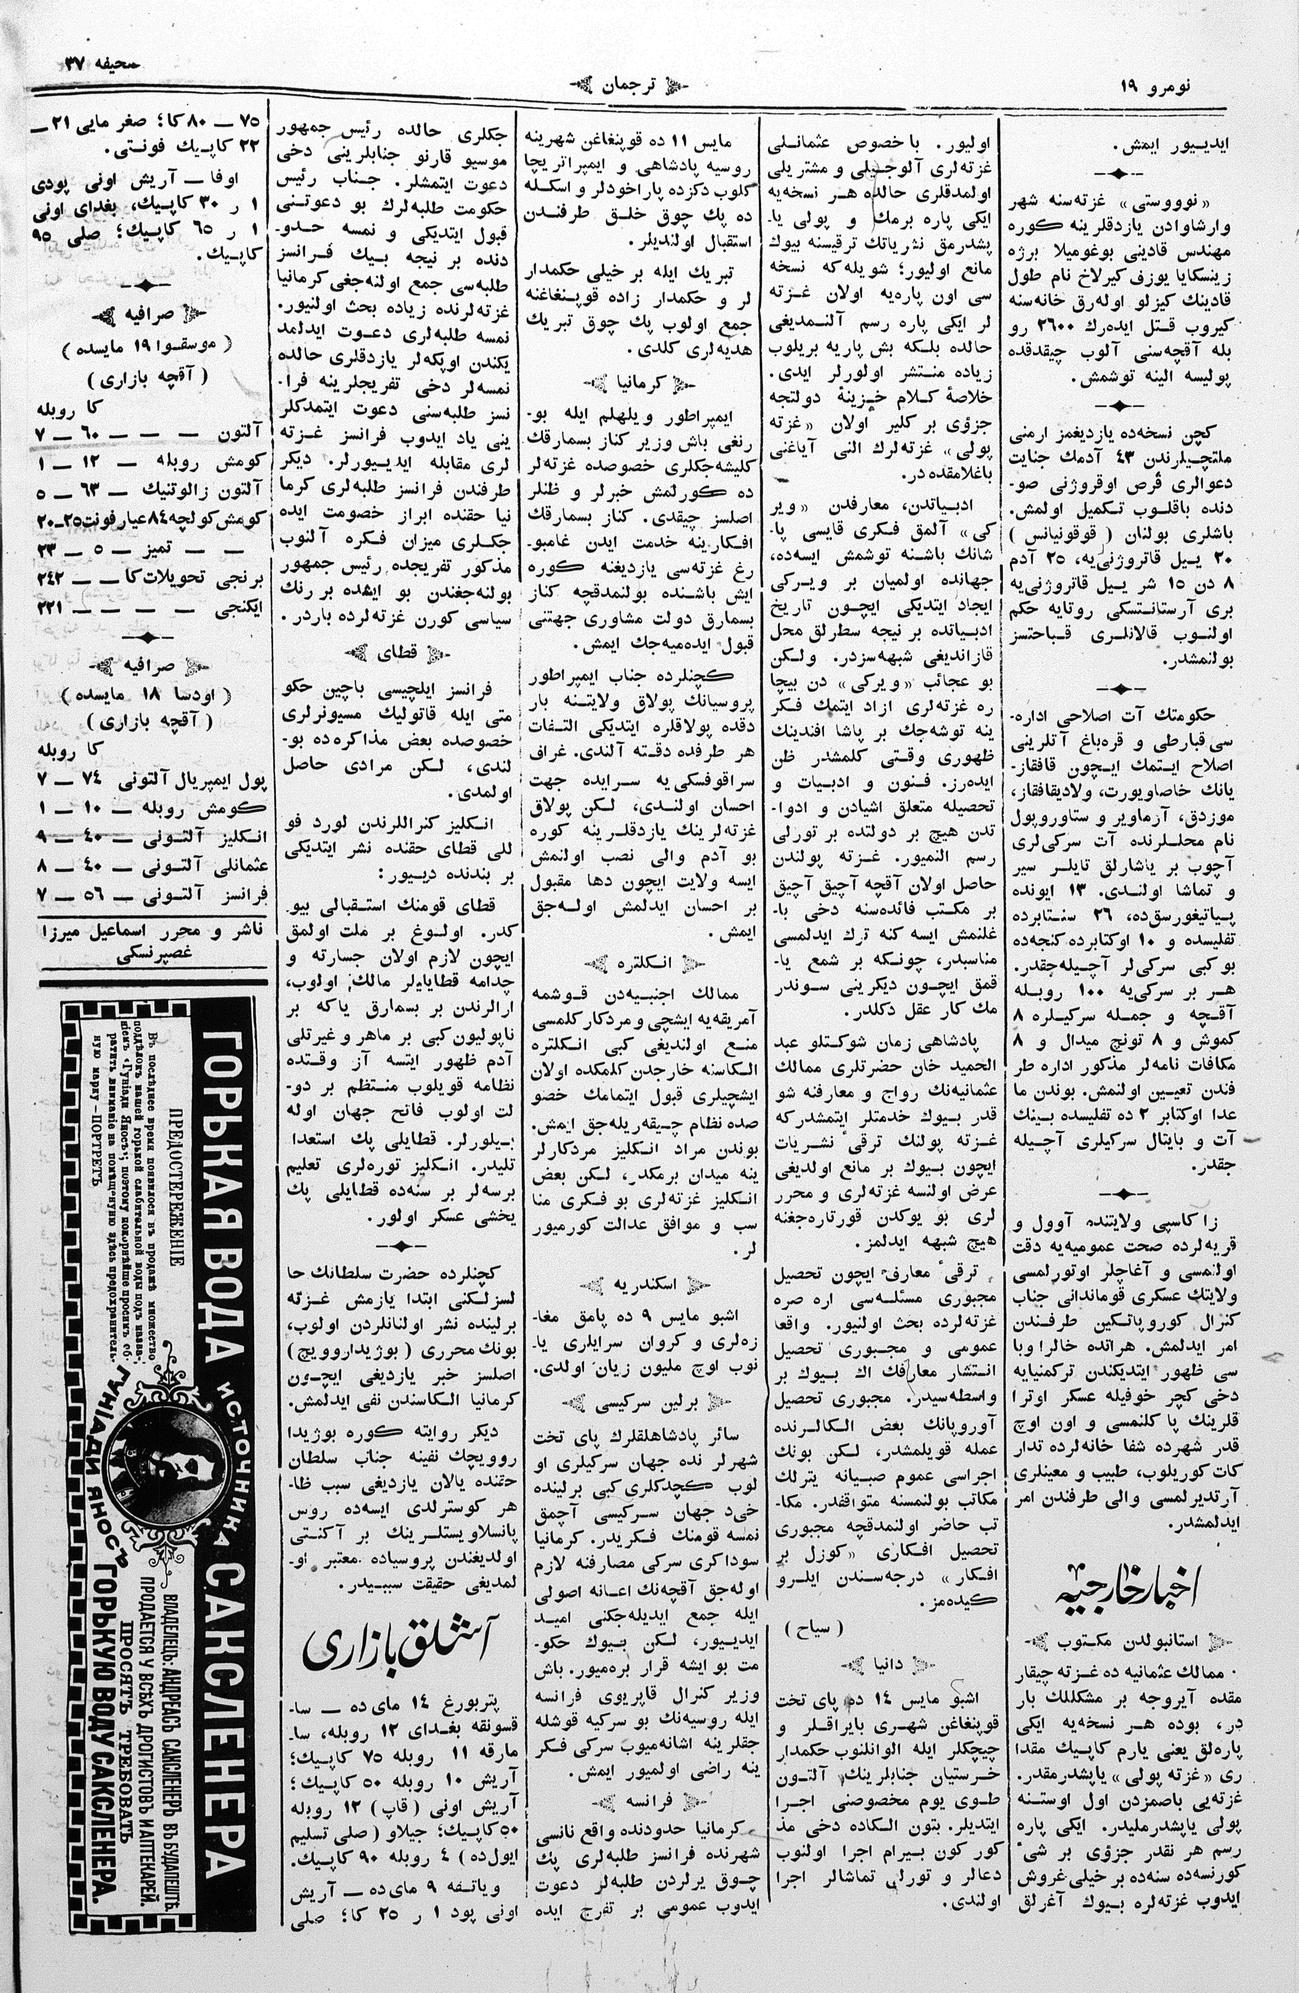 نومرو ١٩
ترجمان
صحیفه ٣٧
ایدییور ایمش.
«نووستی» غزته‌سنه شهر
وارشاوادن یازدقلرینه کوره
مهندس قادینی بوغومیلا برژه
زینسکایا یوزف کیرلاخ نام طول
قادینك کیزلو اوله‌رق خانه‌سنه
کیروب قتل ایده‌رك ٢٦٠٠ رو
بله آقچه‌سنی آلوب چیقدقده
پولیسه الینه توشمش.
کچن نسخه‌ده یازدیغمز ارمنی
ملتچیلرندن ٤٣ آدمك جنایت
دعوالری قرص اوقروژنی صو-
دنده باقلوب تکمیل اولمش.
باشلری بولنان ( قوقونیانس )
٢٠ ییل قاتروژنی‌یه، ٢٥ آدم
٨ دن ١٥ شر ییل قاتروژنی‌یه
بری آرستانتسکی روتایه حکم
اولنوب قالانلری قباحتسز
بولنمشدر.
حکومتك آت اصلاحی اداره-
سی قبارطی و قره‌باغ آتلرینی
اصلاح ایتمك ایچون قافقاز-
یانك خاصاویورت، ولادیقافقاز،
موزدق، آرماویر و ستاوروپول
نام محللرنده آت سرکی‌لری
آچوب بر یاشارلق تایلر سیر
و تماشا اولندی. ١٣ ایونده
پیاتیغورسق‌ده، ٢٦ سنتابرده
تفلیسده و ١٠ اوکتابرده کنجه‌ده
بوکبی سرکی‌لر آچیله‌جقدر.
هر بر سرکی‌یه ١٠٠ روبله
آقچه و جمله سرکیلره ٨
کموش و ٨ تونچ میدال و ٨
مکافات نامه‌لر مذکور اداره طر
فندن تعیین اولنمش. بوندن ما
عدا اوکتابر ٢ ده تفلیسده بینك
آت و بایتال سرکیلری آچیله
جقدر.
زا کاسپی ولایتنده آوول و
قریه‌لرده صحت عمومیه‌یه دقت
اولنمسی و آغاچلر اوتورلمسی
ولایتك عسکری قوماندانی جناب
کنرال کوروپاتکین طرفندن
امر ایدلمش. هراتده خالرا وبا
سی ظهور ایتدیکندن ترکمنیایه
دخی کچر خوفیله عسکر اوترا
قلرینك پا کلنمسی و اون اوچ
قدر شهرده شفا خانه‌لرده تدار
کات کوریلوب، طبیب و معینلری
آرتدیرلمسی والی طرفندن امر
ایدلمشدر.
اخبار خارجیه
استانبولدن مکتوب
ممالك عثمانیه ده غزته چیقار
مقده آیروجه بر مشکللك بار
در، بوده هر نسخه‌یه ایکی
پاره‌لق یعنی یارم کاپیك مقدا
ری «غزته پولی» یاپشدرمقدر.
غزته‌یی باصمزدن اول اوستنه
پولی یاپشدرملیدر. ایکی پاره
رسم هر نقدر جزؤی بر شیٔ
کورنسه‌ده سنه‌ده بر خیلی غروش
ایدوب غزته‌لره بیوك آغرلق
اولیور. باخصوص عثمانلی
غزته‌لری آلوجیلی و مشتریلی
اولمدقلری حالده هر نسخه‌یه
ایکی پاره برمك و پولی یا-
پشدرمق نشریاتك ترقیسنه بیوك
مانع اولیور؛ شویله‌که نسخه
سی اون پاره‌یه اولان غزته
لر ایکی پاره رسم آلنمدیغی
حالده بلکه بش پاریه بریلوب
زیاده منتشر اولورلر ایدی.
خلاصهٔ کلام خزینهٔ دولتجه
جزؤی بر کلیر اولان «غزته
پولی» غزته‌لرك النی آیاغنی
باغلامقده‌در.
ادبیاتدن، معارفدن «ویر
کی» آلمق فکری قایسی پا-
شانك باشنه توشمش ایسه‌ده،
جهانده اولمیان بر ویرکی
ایجاد ایتدیکی ایچون تاریخ
ادبیاتده بر نیجه سطرلق محل
قازاندیغی شبهه‌سزدر. ولکن
بو عجائب «ویرکی» دن بیچا
ره غزته‌لری ازاد ایتمك فکر
ینه توشه‌جك بر پاشا افندینك
ظهوری وقتی کلمشدر ظن
ایده‌رز. فنون و ادبیات و
تحصیله متعلق اشیادن و ادوا-
تدن هیچ بر دولتده بر تورلی
رسم النمیور. غزته پولندن
حاصل اولان آقچه آچیق آچیق
بر مکتب فائده‌سنه دخی با-
غلنمش ایسه کنه ترك ایدلمسی
مناسبدر، چونکه بر شمع یا-
قمق ایچون دیکرینی سوندر
مك کار عقل دکلدر.
پادشاهی زمان شوکتلو عبد
الحمید خان حضرتلری ممالك
عثمانیه‌نك رواج و معارفنه شو
قدر بیوك خدمتلر ایتمشدرکه
غزته پولنك ترقیٔ نشریات
ایچون بیوك بر مانع اولدیغی
عرض اولنسه غزته‌لری و محرر
لری بو یوکدن قورتاره‌جغنه
هیچ شبهه ایدلمز.
ترقیٔ معارف ایچون تحصیل
مجبوری مسئله‌سی اره صره
غزته‌لرده بحث اولنیور. واقعا
عمومی و مجبوری تحصیل
انتشار معارفك اك بیوك بر
واسطه‌سیدر. مجبوری تحصیل
آوروپانك بعض الکالرنده
عمله قویلمشدر، لکن بونك
اجراسی عموم صبیانه یترلك
مکاتب بولنمسنه متواقفدر. مکا-
تب حاضر اولنمدقچه مجبوری
تحصیل افکاری «کوزل بر
افکار» درجه‌سندن ایلرو
کیده‌مز.
( سیاح )
دانیا
اشبو مایس ١٤ ده پای تخت
قوپنغاغن شهری بایراقلر و
چیچکلر ایله الوانلنوب حکمدار
خرستیان جنابلرینك آلتون
طوی یوم مخصوصنی اجرا
ایتدیلر. بتون الکاده دخی مذ
کور کون بیرام اجرا اولنوب
دعالر و تورلی تماشالر اجرا
اولندی.
مایس ١١ ده قوپنغاغن شهرینه
روسیه پادشاهی و ایمپراتریچا
کلوب دکزده پاراخودلر و اسکله
ده پك چوق خلق طرفندن
استقبال اولندیلر.
تبریك ایله بر خیلی حکمدار
لر و حکمدار زاده قوپنغاغنه
جمع اولوب پك چوق تبریك
هدیه‌لری کلدی.
کرمانیا
ایمپراطور ویلهلم ایله بو-
رنغی باش وزیر کناز بسمارقك
کلیشه‌جکلری خصوصده غزته‌لر
ده کورلمش خبرلر و ظنلر
اصلسز چیقدی. کناز بسمارقك
افکارینه خدمت ایدن غامبو-
رغ غزته‌سی یازدیغنه کوره
ایش باشنده بولنمدقچه کناز
بسمارق دولت مشاوری جهتنی
قبول ایده‌میه‌جك ایمش.
کچنلرده جناب ایمپراطور
پروسیانك پولاق ولایتنه بار
دقده پولاقلره ایتدیکی التفات
هر طرفده دقته آلندی. غراف
سراقوفسکی‌یه سرایده جهت
احسان اولندی، لکن پولاق
غزته‌لرینك یازدقلرینه کوره
بو آدم والی نصب اولنمش
ایسه ولایت ایچون دها مقبول
بر احسان ایدلمش اوله‌جق
ایمش.
انکلتره
ممالك اجنبیه‌دن قوشمه
آمریقه‌یه ایشچی و مردکار کلمسی
منع اولندیغی کبی انکلتره
الکاسنه خارجدن کلمکده اولان
ایشچیلری قبول ایتمامك خصو
صده نظام چیقه‌ریله‌جق ایمش.
بوندن مراد انکلیز مردکارلر
ینه میدان برمکدر، لکن بعض
انکلیز غزته‌لری بو فکری منا
سب و موافق عدالت کورمیور
لر.
اسکندریه
اشبو مایس ٩ ده پامق مغا-
زه‌لری و کروان سرایلری یا-
نوب اوچ ملیون زیان اولدی.
برلین سرکیسی
سائر پادشاهلقلرك پای تخت
شهرلر نده جهان سرکیلری او
لوب کچدکلری کبی برلینده
خی‌د جهان سرکیسی آچمق
نمسه قومنك فکریدر. کرمانیا
سوداکری سرکی مصارفنه لازم
اوله‌جق آقچه‌نك اعانه اصولی
ایله جمع ایدیله‌جکنی امید
ایدییور، لکن بیوك حکو-
مت بوایشه قرار بره‌میور. باش
وزیر کنرال قاپریوی فرانسه
ایله روسیه‌نك بو سرکیه قوشله
جقلرینه اشانه‌میوب سرکی فکر
ینه راضی اولمیور ایمش.
فرانسه
کرمانیا حدودنده واقع نانسی
شهرنده فرانسز طلبه‌لری پك
چوق یرلردن طلبه‌لر دعوت
ایدوب عمومی بر تفرج ایده
جکلری حالده رئیس جمهور
موسیو قارنو جنابلرینی دخی
دعوت ایتمشلر. جناب رئیس
حکومت طلبه‌لرك بو دعوتنی
قبول ایتدیکی و نمسه حدو-
دنده بر نیجه بیك فرانسز
طلبه‌سی جمع اولنه‌جغی کرمانیا
غزته‌لرنده زیاده بحث اولنیور.
نمسه طلبه‌لری دعوت ایدلمد
یکندن اوپکه‌لر یازدقلری حالده
نمسه‌لر دخی تفریجلرینه فرا-
نسز طلبه‌سنی دعوت ایتمدکلر
ینی یاد ایدوب فرانسز غزته
لری مقابله ایدییورلر. دیکر
طرفندن فرانسز طلبه‌لری کرما
نیا حقنده ابراز خصومت ایده
جکلری میزان فکره آلنوب
مذکور تفریجده رئیس جمهور
بولنه‌جغندن بو ایشده بر رنك
سیاسی کورن غزته‌لرده باردر.
قطای
فرانسز ایلچیسی باچین حکو
متی ایله قاتولیك مسیونرلری
خصوصده بعض مذاکره‌ده بو-
لندی، لکن مرادی حاصل
اولمدی.
انکلیز کنراللرندن لورد فو
للی قطای حقنده نشر ایتدیکی
بر بندنده دییور:
قطای قومنك استقبالی بیو
کدر. اولوغ بر ملت اولمق
ایچون لازم اولان جسارته و
چدامه قطایلیلر مالك اولوب،
ارالرندن بر بسمارق یاکه بر
ناپولیون کبی بر ماهر و غیرتلی
آدم ظهور ایتسه آز وقتده
نظامه قویلوب منتظم بر دو-
لت اولوب فاتح جهان اوله
بیلورلر. قطایلی پك استعدا
تلیدر. انکلیز توره‌لری تعلیم
برسه‌لر بر سنه‌ده قطایلی پك
یخشی عسکر اولور.
کچنلرده حضرت سلطانك حا
لسزلکنی ابتدا یازمش غزته
برلینده نشر اولنانلردن اولوب،
بونك محرری ( بوژیداروویچ )
اصلسز خبر یازدیغی ایچون
کرمانیا الکاسندن نفی ایدلمش.
دیکر روایته کوره بوژیدا
روویچك نفینه جناب سلطان
حقنده یالان یازدیغی سبب ظا-
هر کوسترلدی ایسه‌ده روس
پانسلاویستلرینك بر آکنتی
اولدیغندن پروسیاده معتبر او-
لمدیغی حقیقت سببیدر.
آشلق بازاری
پتربورغ ١٤ مای ده — سا-
قسونقه بغدای ١٢ روبله، سا-
مارقه ١١ روبله ٧٥ کاپیك؛
آریش ١٠ روبله ٥٠ کاپیك؛
آریش اونی (قاپ) ١٢ روبله
٥٠ کاپیك؛ جیلاو (صلی تسلیم
ایول‌ده) ٤ روبله ٩٠ کاپیك.
ویاتقه ٩ مای ده — آریش
اونی پود ١ ر ٢٥ کا؛ صلی
٧٥ — ٨٠ کا؛ صغر مایی ٢١ —
٢٢ کاپیك فونتی.
اوفا — آریش اونی پودی
١ ر ٣٠ کاپیك، بغدای اونی
١ ر ٦٥ کاپیك؛ صلی ٩٥
کاپیك.
صرافیه
( موسقوا ١٩ مایسده )
( آقچه بازاری )
کا روبله
آلتون — — — ٦٠ — ٧
کومش روبله — ١٢ — ١
آلتون زالوتنیك — ٦٣ — ٥
کومش کولچه ٨٤ عیار فونت ٢٥-٢٠
— — تمیز — ٥ — ٢٣
برنجی تحویلات کا — — ٢٤٢
ایکنجی — — — — ٢٢١
صرافیه
( اودسا ١٨ مایسده )
( آقچه بازاری )
کا روبله
پول ایمپریال آلتونی ٧٤ — ٧
کومش روبله — ١٠ — ١
انکلیز آلتونی — ٤٠ — ٩
عثمانلی آلتونی — ٤٠ — ٨
فرانسز آلتونی — ٥٦ — ٧
ناشر و محرر اسماعیل میرزا
غصپرنسکی
ГОРЬКАЯ ВОДА ИСТОЧНИКА САКСЛЕНЕРА
ПРЕДОСТЕРЕЖЕНІЕ
Въ послѣднее время появилось въ продажѣ множество
поддѣлокъ нашей горькой слабительной воды подъ назва-
ніемъ «Гуніади Яносъ»; поэтому покорнѣйше просимъ об-
ратить вниманіе на помѣщенную здѣсь предохранитель-
ную марку — ПОРТРЕТЪ.
ГУНІАДИ ЯНОСЪ
ВЛАДѢЛЕЦЪ: АНДРЕАСЪ САКСЛЕНЕРЪ ВЪ БУДАПЕШТѢ.
ПРОДАЕТСЯ У ВСѢХЪ ДРОГИСТОВЪ И АПТЕКАРЕЙ.
ПРОСЯТЪ ТРЕБОВАТЬ
ГОРЬКУЮ ВОДУ САКСЛЕНЕРА.